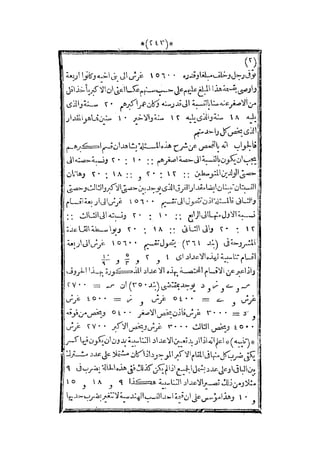 *(٢٤٣)*
(٢)
توفى رجل وخلف مبلغا وقدره ١٥٦٠٠ غرش الى بنى اخيه وكانوا اربعة
واوصى بقسمة هذا المبلغ عليهم على حسب سنهم عكسا اعنى ان الاكبر يأخذ اقل
من الاصغر عنه سنا بالنسبة الى قدر سنه وكان عمر اكبرهم ٢٠ سنة والذى
يليه ١٨ سنة والذى يليه ١٢ سنة والاخير ١٠ سنين فما هو المقدار
الذى يخص كل واحد منهم
فالجواب انه بالتفحص عن شرح هذه المسئلة يشاهد ان قسم اكبرهم
يجب ان يكون بالنسبة الى حصة اصغرهم :: ١٠ : ٢٠ ونسبة حصته الى
حصتى الولدين المتوسطين :: ١٢ : ٢٠ و :: ١٨ : ٢٠ وهاتان
النسبتان تبينان ايضا مقدار الفرق الذى يوجد بين حصتى الاكبر والثالث وحصتى
والثانى فالمسئلة اذن تقول الى تقسيم ١٥٦٠٠ غرش الى اربعة اقسام
نسبة الاول منها الى الرابع :: ١٠ : ٢٠ ونسبته الى الثالث ::
١٢ : ٢٠ والى الثانى :: ١٨ : ٢٠ وبواسطة القاعدة
المشروحة فى (بند ٣٦١) يتحول تقسيم ١٥٦٠٠ غرش الى اربعة
اقسام متناسبة لهذه الاعداد اى ١ و ٢ و ٥/٣ و ١٠/٩
واذا عبر عن الاقسام المختصة بهذه الاعداد المذكورة بهذا الحروف
س و ے و د يوجد بمقتضى (بند ٣٥٠) ان س = ٢٧٠٠
غرش و ے = ٥٤٠٠ غرش و = ٤٥٠٠ غرش
و د = ٣٠٠٠ غرش فاذن يخص الاصغر ٥٤٠٠ ويخص من فوقه
٤٥٠٠ ويخص الثالث ٣٠٠٠ غرش ويخص الاكبر ٢٧٠٠ غرش
*(تنبيه)* اعلم انه اذا اريد تعيين الاعداد المتناسبة بدون ان يكون فيها كسر
يكفى ضرب كل منها فى المقام الاكبر الموجود اذا كان مشتملا على عدد مشترك
بين الباقى او على عدد يشمل الجميع اذا لم يكن كذلك ففى هذه الحالة يضرب فى ٩
مثلا ومن ذلك تصير الاعداد المتناسبة هكذا ٩ و ١٨ و ١٥
و ١٠ وهذا مؤسس على ان قيمة احد النسب الهندسية لا تتغير بضرب حديها